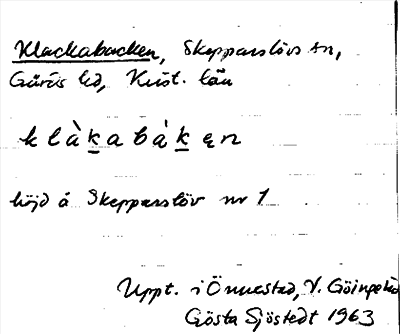 Klackabacken, Skepparslövs sn,
Gärds hd, Krist. län
klàkabàkęn
höjd å Skepparslöv nr 1
Uppt. i Önnestad, V. Göinge hd
Gösta Sjöstedt 1963